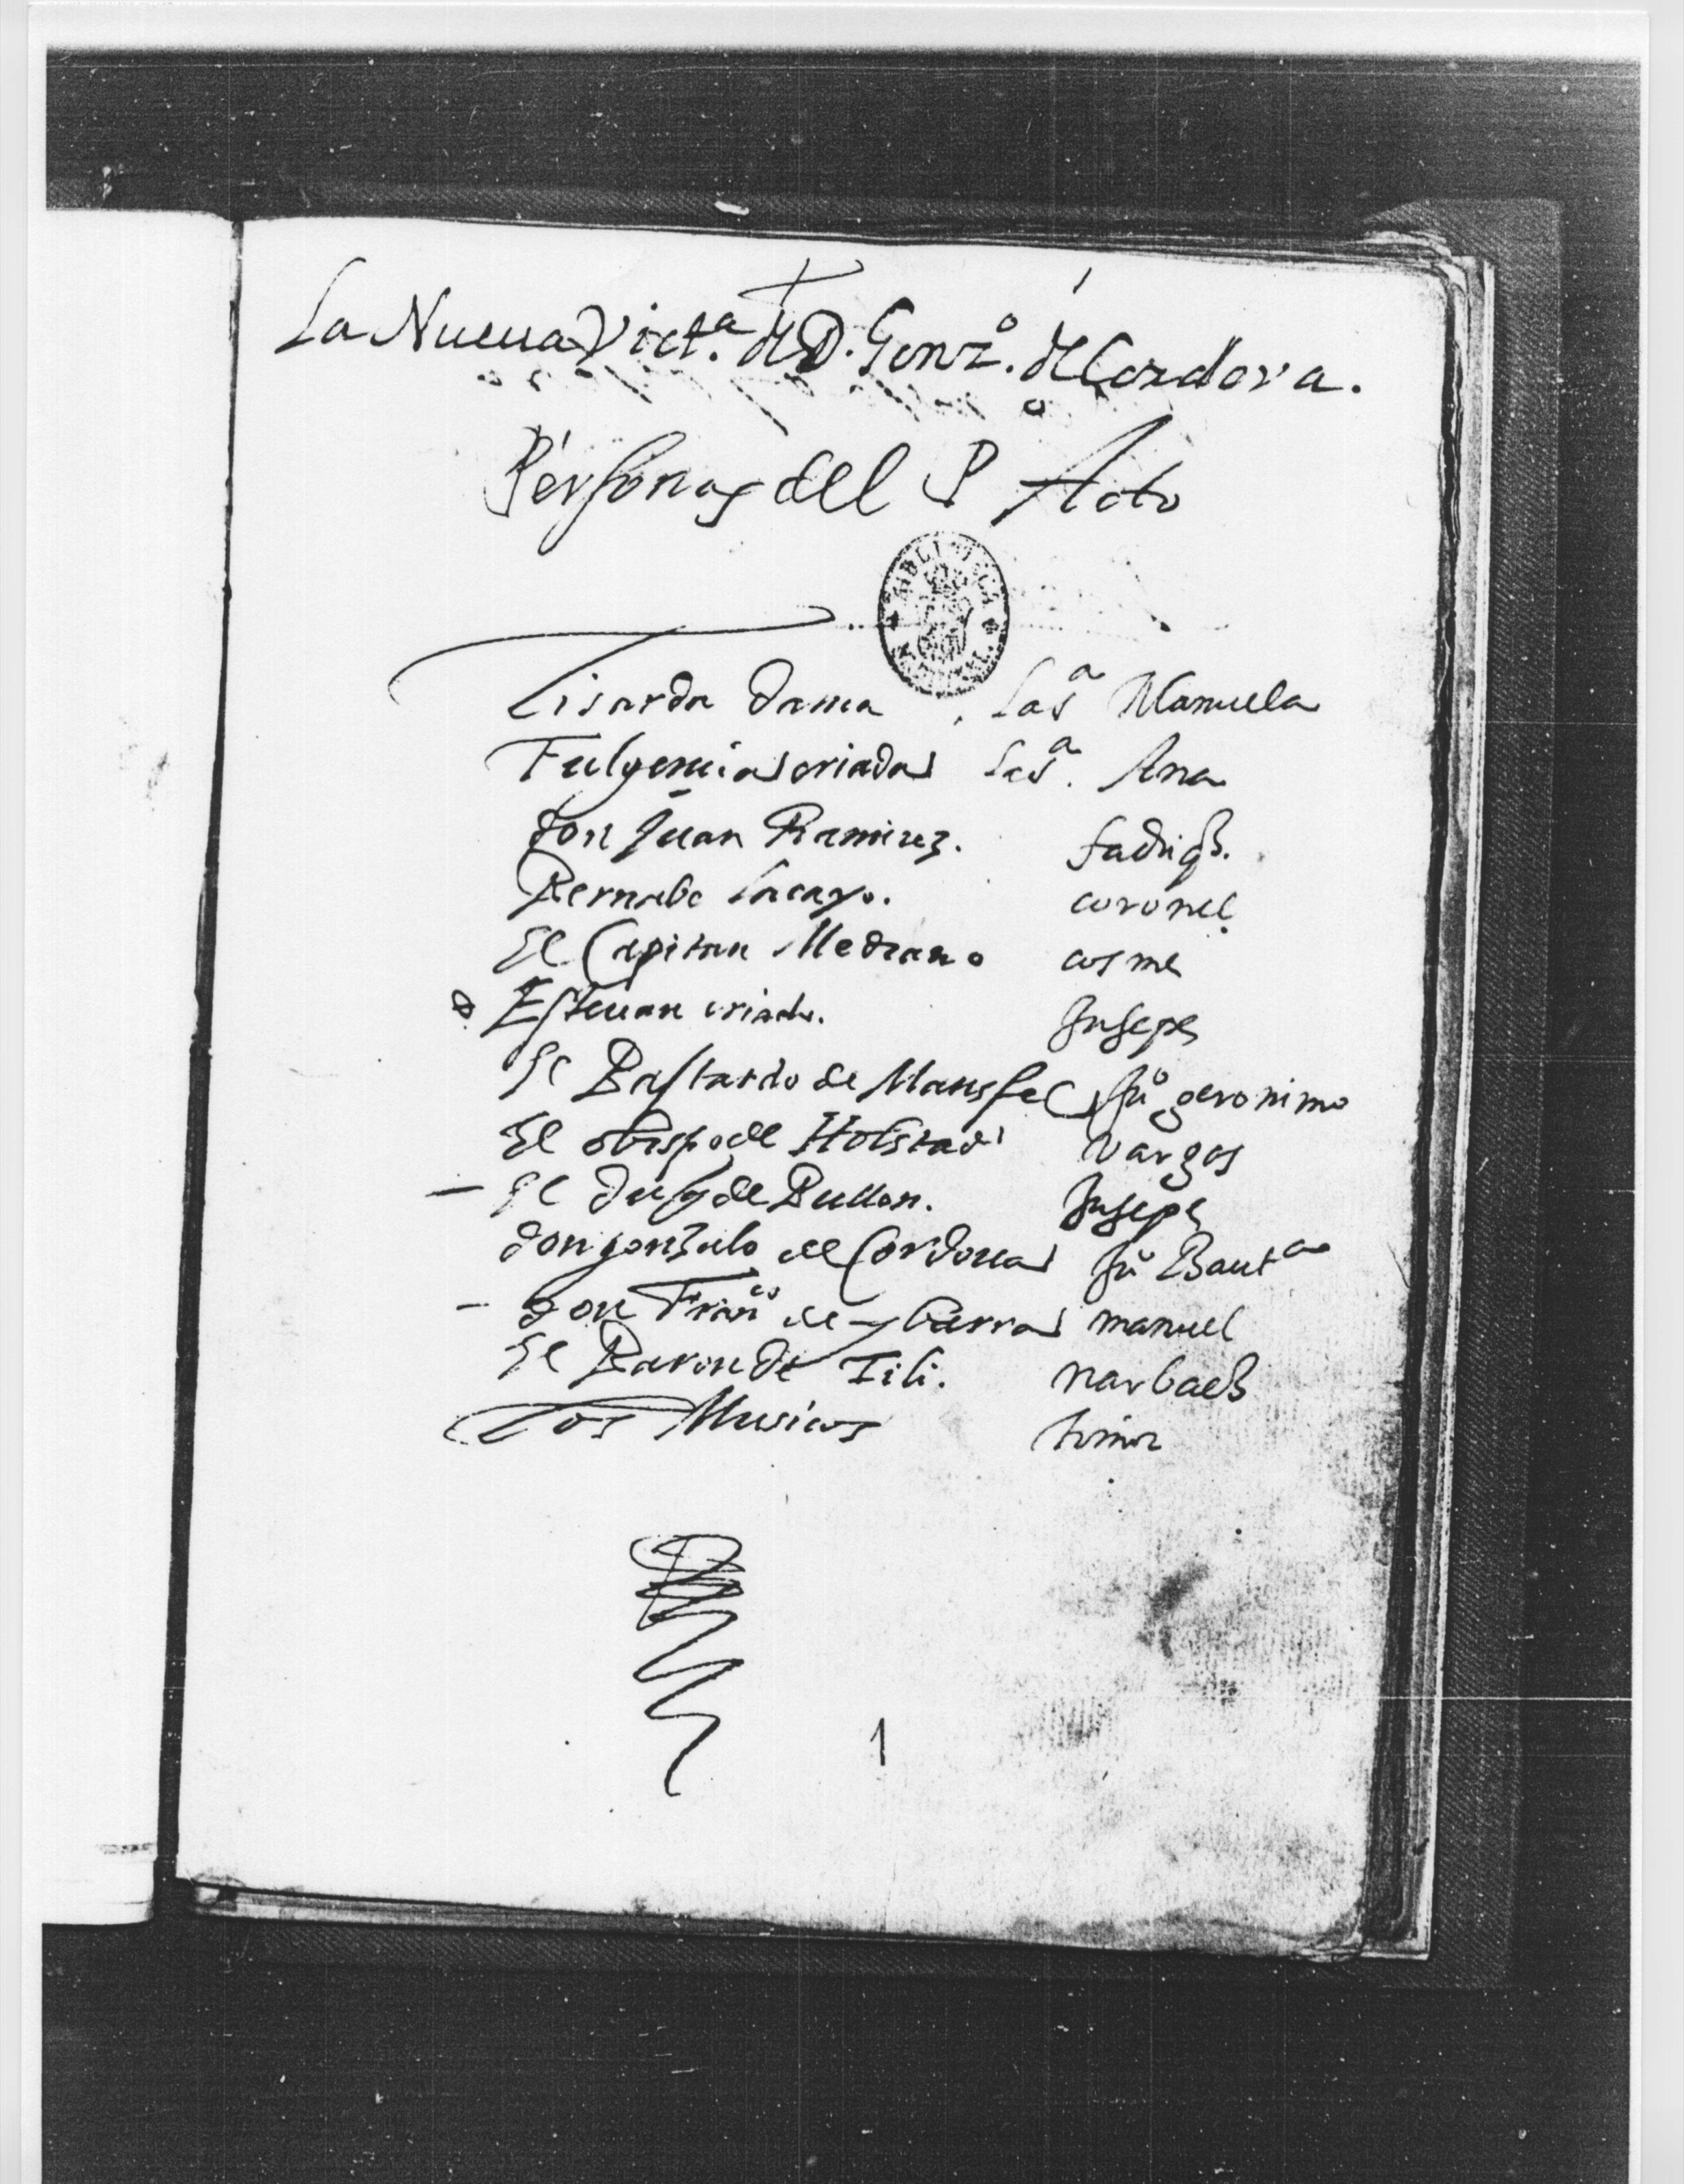 La Nueua Vict.ª de D. Gonz.º de Cordova.
Personas del P Acto
BIBLIOTECA NACIONAL
Lisarda dama la sª Manuela
Fulgencia criada la sª. Ana
don Juan Ramirez. fadriqe.
Bernabe lacayo. coronel
El Capitan Medrano cosme
Esteuan criado. Jusepe
El Bastardo de Mansfel Juº geronimo
El obispo de Holstad Vargas
El duq de Bullon. Jusepe
don gonzalo de Cordoua Juº Bautª
don Franco de ybarra manuel
El Baron de Tili. narbaez
Los Musicos
1